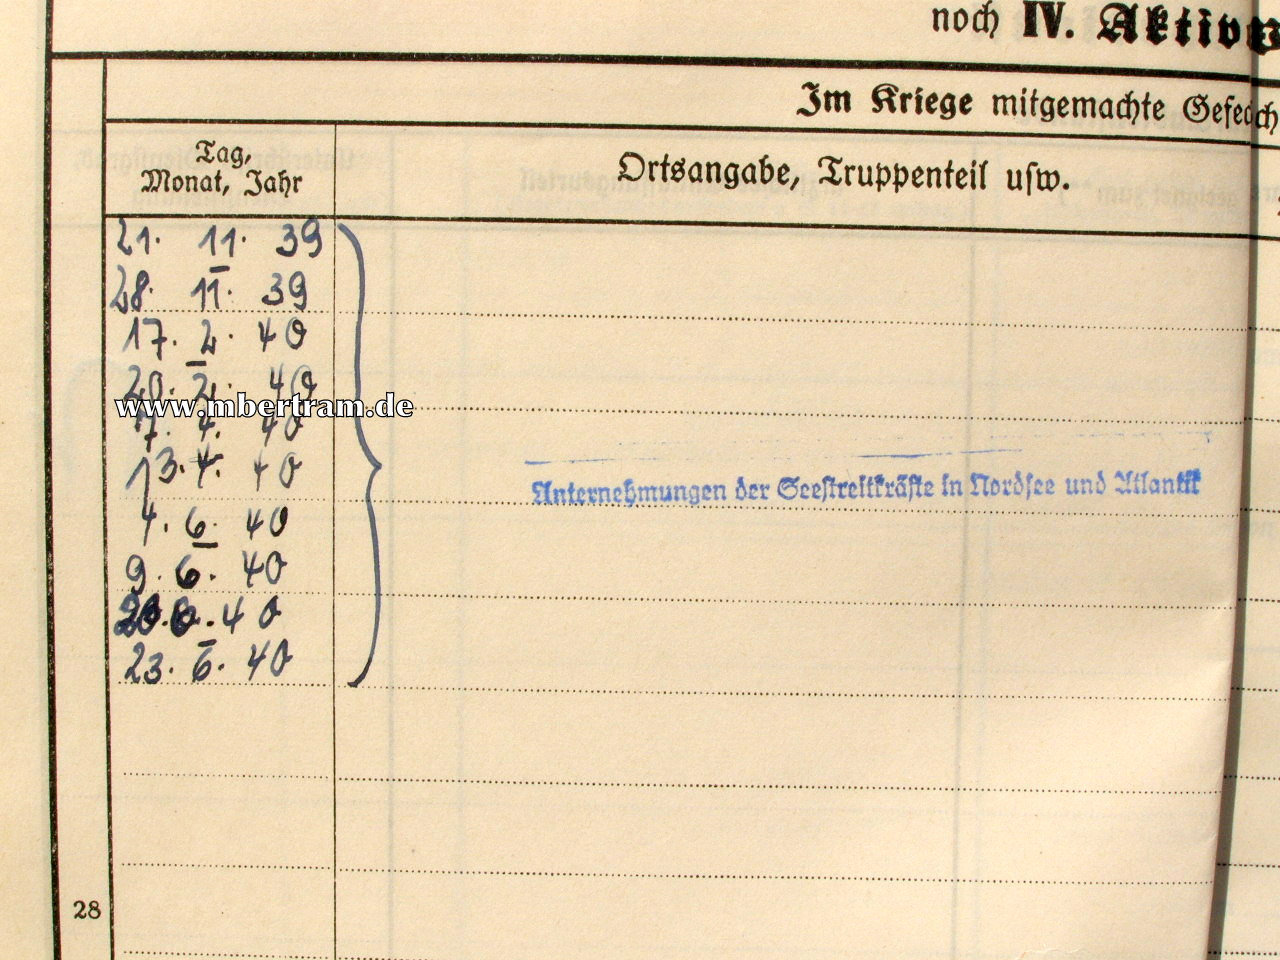 noch IV. Aktiv
Im Kriege mitgemachte Gefech
Tag,
Monat, Jahr
Ortsangabe, Truppenteil usw.
21. 11. 39
28. 11. 39
17. 2. 40
20. 2. 40
www.mbertram.de
7. 4. 40
13. 4. 40
Unternehmungen der Seestreitkräfte in Nordsee und Atlantik
4. 6. 40
9. 6. 40
20. 6. 40
23. 6. 40
28